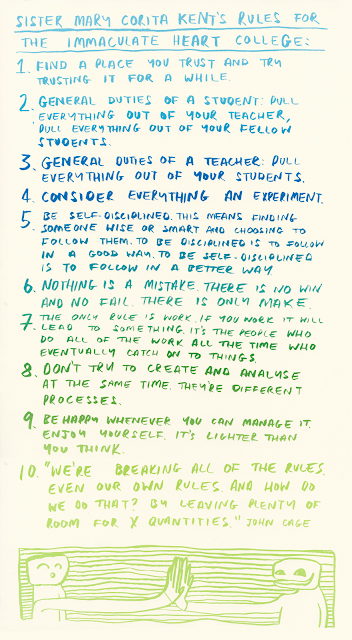 SISTER MARY CORITA KENT'S RULES FOR
THE IMMACULATE HEART COLLEGE:
1. FIND A PLACE YOU TRUST AND TRY
TRUSTING IT FOR A WHILE.
2. GENERAL DUTIES OF A STUDENT: PULL
EVERYTHING OUT OF YOUR TEACHER,
PULL EVERYTHING OUT OF YOUR FELLOW
STUDENTS.
3. GENERAL DUTIES OF A TEACHER: PULL
EVERYTHING OUT OF YOUR STUDENTS.
4. CONSIDER EVERYTHING AN EXPERIMENT.
5. BE SELF-DISCIPLINED. THIS MEANS FINDING
SOMEONE WISE OR SMART AND CHOOSING TO
FOLLOW THEM. TO BE DISCIPLINED IS TO FOLLOW
IN A GOOD WAY. TO BE SELF-DISCIPLINED
IS TO FOLLOW IN A BETTER WAY
6. NOTHING IS A MISTAKE. THERE IS NO WIN
AND NO FAIL. THERE IS ONLY MAKE.
7. THE ONLY RULE IS WORK. IF YOU WORK IT WILL
LEAD TO SOMETHING. IT'S THE PEOPLE WHO
DO ALL OF THE WORK ALL THE TIME WHO
EVENTUALLY CATCH ON TO THINGS.
8. DON'T TRY TO CREATE AND ANALYSE
AT THE SAME TIME. THEY'RE DIFFERENT
PROCESSES.
9. BE HAPPY WHENEVER YOU CAN MANAGE IT.
ENJOY YOURSELF. IT'S LIGHTER THAN
YOU THINK.
10. "WE'RE BREAKING ALL OF THE RULES.
EVEN OUR OWN RULES. AND HOW DO
WE DO THAT? BY LEAVING PLENTY OF
ROOM FOR X QUANTITIES." JOHN CAGE